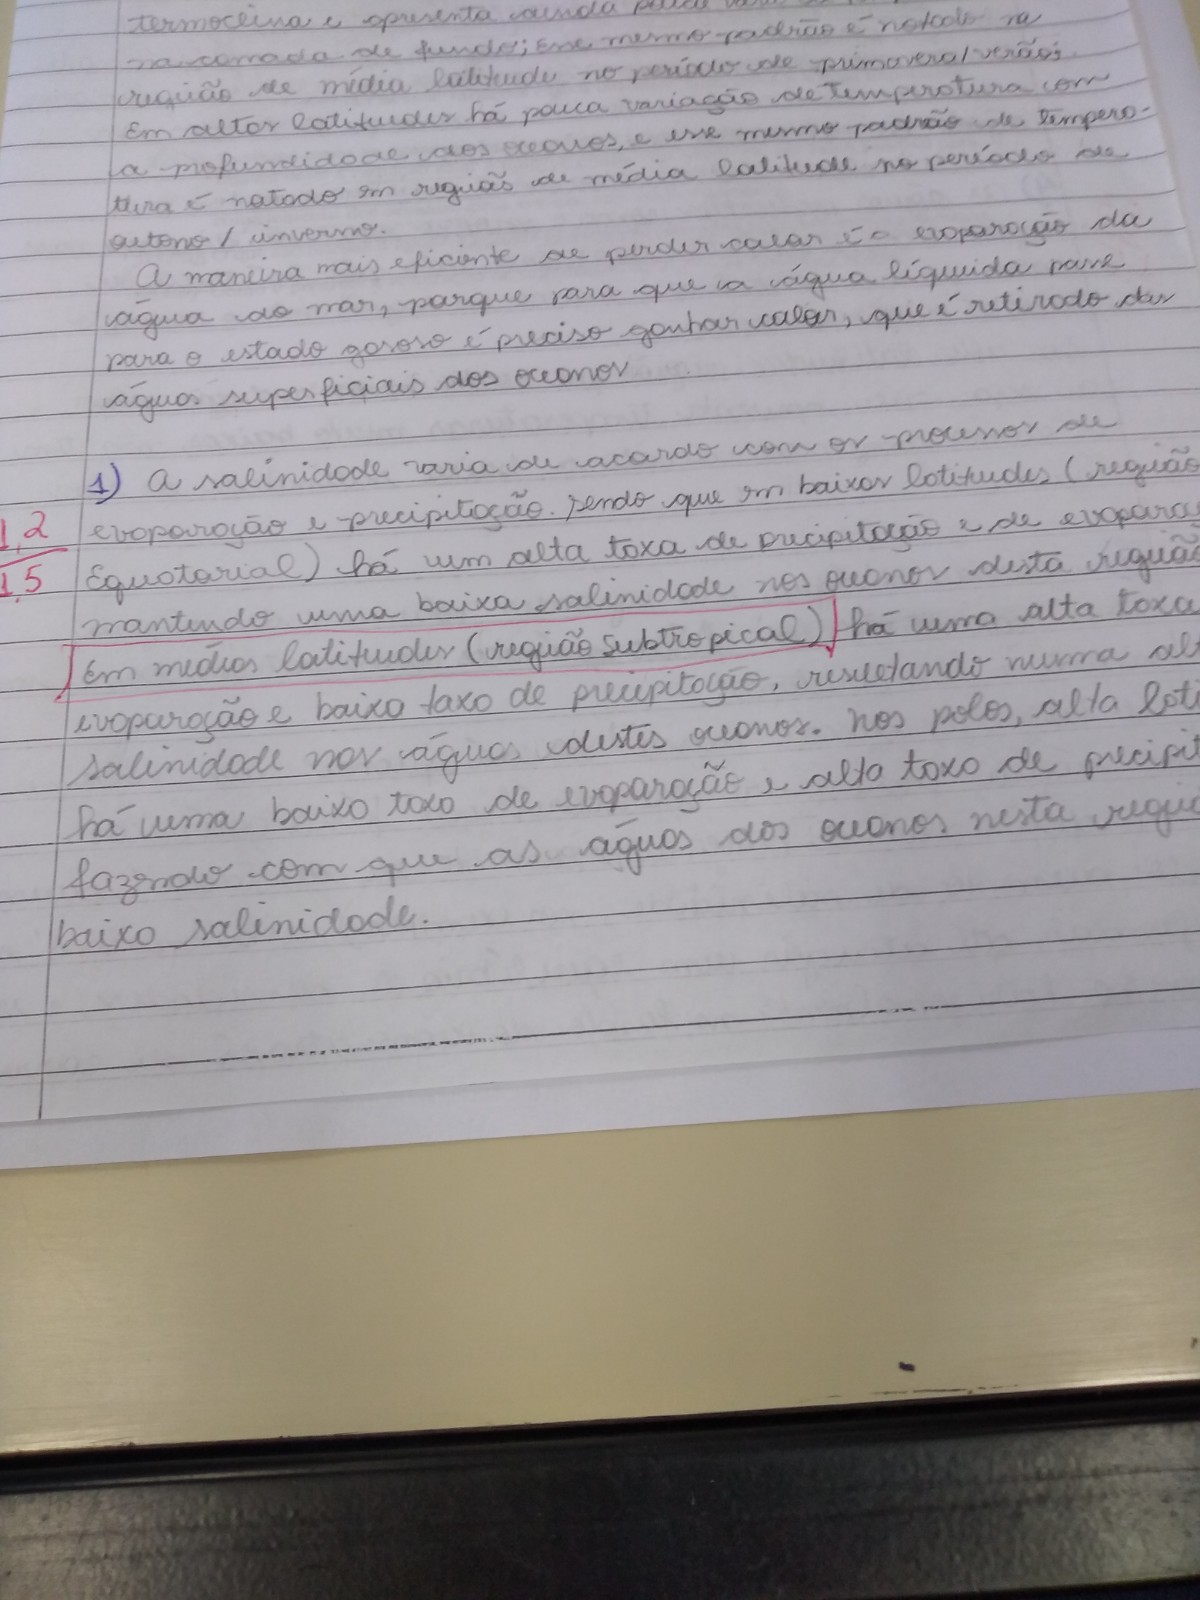 termoclina e apresenta ainda
na camada de fundo; esse mesmo padrão é notado na
região de média latitude no período de primavera/verão;
Em altas latitudes há pouca variação de temperatura com
a profundidade dos oceanos, e esse mesmo padrão de tempera-
tura é notado em regiãs de média latitude no período de
outono/ inverno.
A maneira mais eficiente de perder calor é a evaporação da
água do mar, porque para que a água líquida passe
para o estado gasoso é preciso ganhar calor, que é retirado das
águas superficiais dos oceanos
1) A salinidade varia de acordo com os processos de
1,2 evaporação e precipitação. Sendo que em baixas latitudes (região
1,5 Equatorial) há um alta taxa de precipitação e de evapora
mantendo uma baixa salinidade nos oceanos desta região
Em médias latitudes (região subtropical) há uma alta taxa
evaporação e baixa taxa de precipitação, resultando numa al
salinidade nas águas destes oceanos. Nos polos, alta lati
há uma baixa taxa de evaporação e alta taxa de precipit
fazendo com que as águas dos oceanos nesta regi
baixo salinidade.